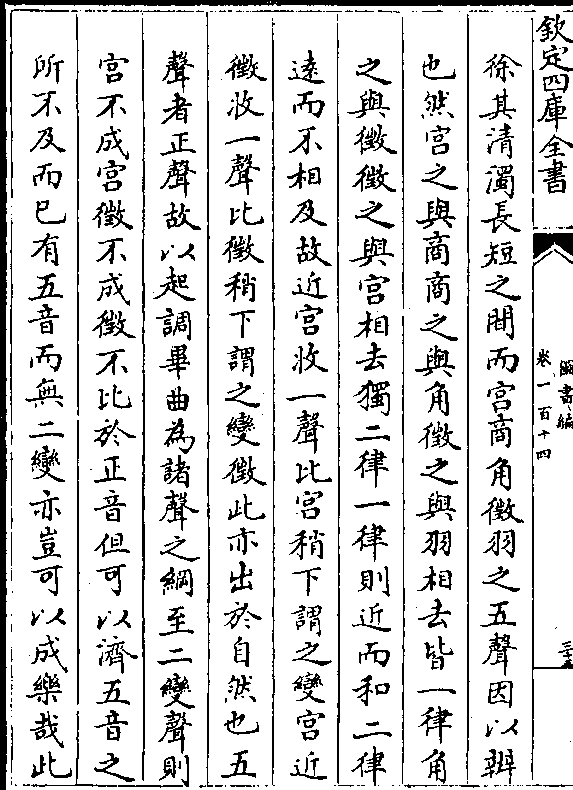 欽定四庫全書
圖書編
卷一百十四
三十五
徐其清濁長短之間而宫商角徴羽之五聲因以辨
也然宫之與商商之與角徴之與羽相去皆一律角
之與徴徴之與宫相去獨二律一律則近而和二律
逺而不相及故近宫收一聲比宫稍下謂之變宫近
徴收一聲比徴稍下謂之變徴此亦出於自然也五
聲者正聲故以起調畢曲為諸聲之綱至二變聲則
宫不成宫徴不成徴不比於正音但可以濟五音之
所不及而已有五音而無二變亦豈可以成樂哉此